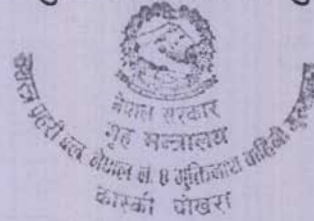 नेपाल सरकार
गृह मन्त्रालय
सशस्त्र प्रहरी बल, नेपाल नं. ८ मुक्तिनाथ वाहिनी मुख्यालय
कास्की पोखरा